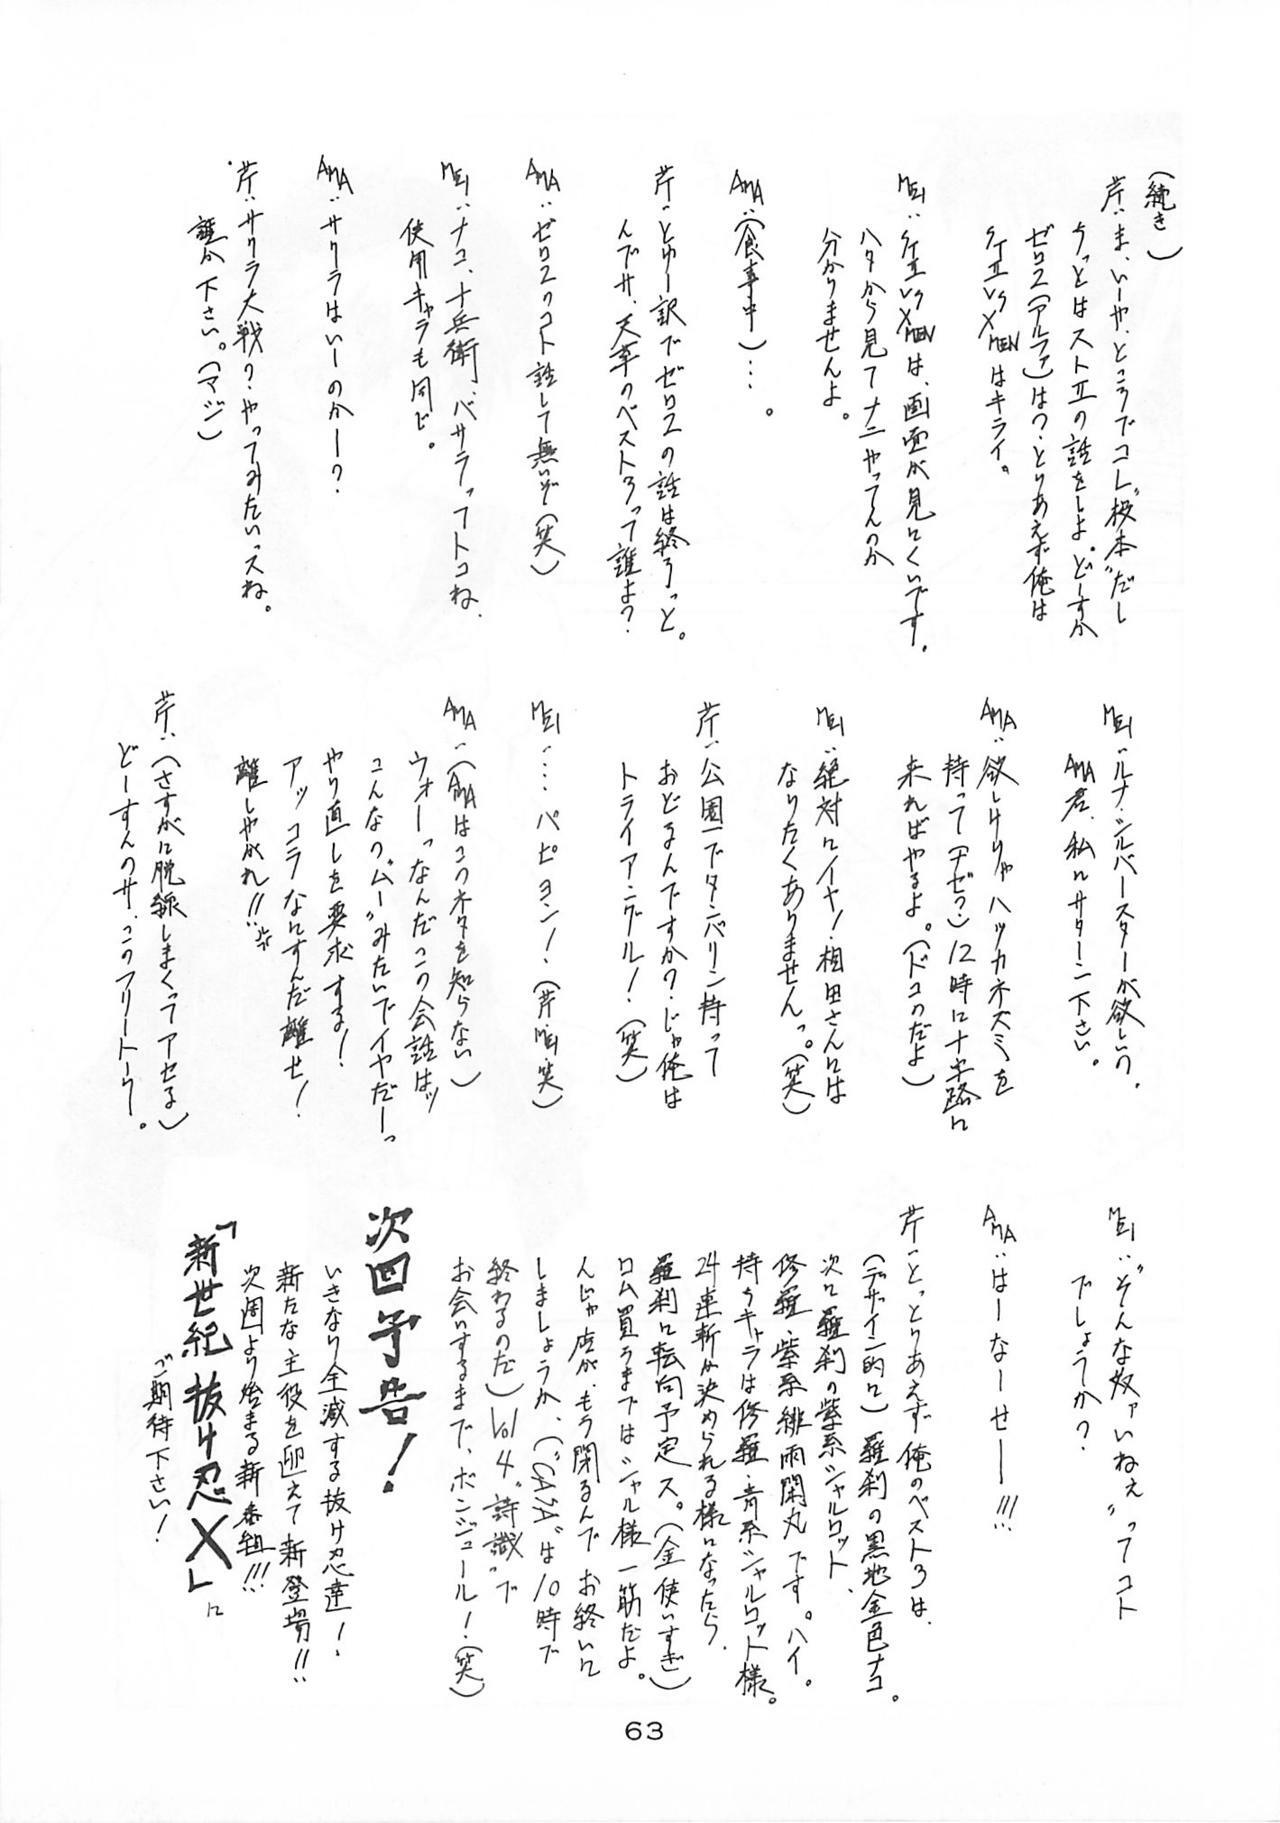 (続き)
芹:ま、いーや、ところでコレ"桜本"だし
ちっとはストⅡの話をしよ。どーすか
ゼロ2(アルファ)は?とりあえず俺は
ケイⅡVSXMENはキライ。
MEI:ケイⅡVSXMENは、画面が見にくいです。
ハタから見てナニやってんのか
分かりませんよ。
AMA:(食事中)…。
芹:とゆー訳でゼロ2の話は終ろっと。
んでサ、天草のベスト3って誰よ?
AMA:ゼロ2のコト話して無いぞ(笑)
MEI:ナコ、十兵衛、バサラってトコね、
使用キャラも同じ。
AMA:サクラはいーのかー?
芹:サクラ大戦?やってみたいっスね。
誰か下さい。(マジ)
MEI:ルナ・シルバースターが欲しいの。
AMA君、私にサターン下さい。
AMA:欲しけりゃハツカネズミを
持って(ナゼ?)12時に十字路に
来ればやるよ。(ドコのだよ)
MEI:絶対にイヤ!相田さんには
なりたくありませんっ。(笑)
芹:公園でタンバリン持って
おどるんですか?じゃ俺は
トライアングル!(笑)
MEI:…パピヨン!(芹・MEI・笑)
AMA:(AMAはこのネタを知らない)
ウォーっなんだこの会話はッ
こんなの"ムー"みたいでイヤだーっ
やり直しを要求する!
アッコラなにすんだ離せ!
離しやがれ!!
芹:(さすがに脱線しまくってアセる)
どーすんのサ、このフリートーク。
MEI:"そんな奴ァいねぇ"ってコト
でしょうか?
AMA:はーなーせー!!!
芹:とっとりあえず俺のベスト3は、
(デザイン的に)羅刹の黒地金色ナコ。
次に羅刹の紫系シャルロット、
修羅・紫系緋雨閑丸です。ハイ。
持ちキャラは修羅・青系シャルロット様。
24連斬が決められる様になったら、
羅刹に転向予定ス。(金使いすぎ)
ロム買うまではシャル様一筋だよ。
んじゃ店が、もう閉るんでお終いに
しましょうか、("CASA"は10時で
終わるのだ)Vol4."詩織"で
お会いするまで、ボンジュール!(笑)
次回予告!
いきなり全滅する抜け忍達!
新たな主役を迎えて新登場!!
次週より始まる新番組!!!
「新世紀 抜け忍X」に
ご期待下さい!
63